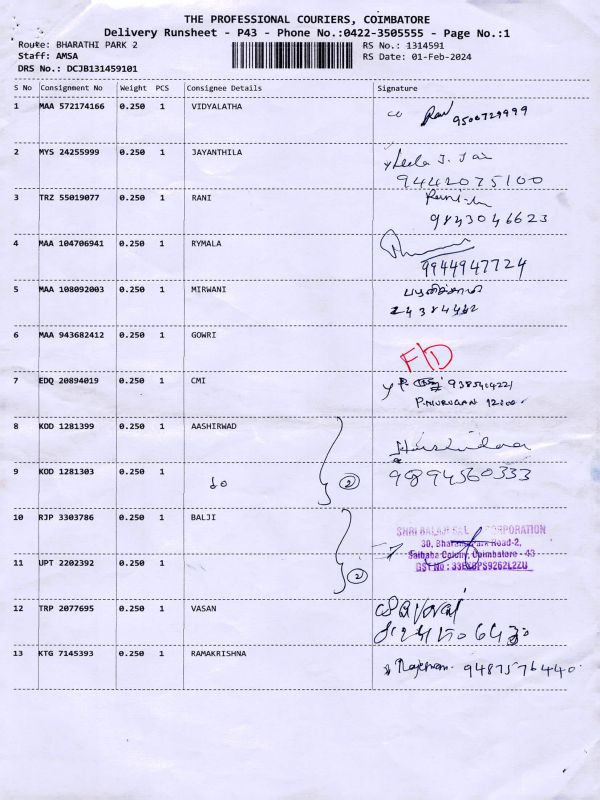 THE PROFESSIONAL COURIERS, COIMBATORE
Delivery Runsheet - P43 - Phone No.:0422-3505555 - Page No.:1
Route: BHARATHI PARK 2 RS No.: 1314591
Staff: AMSA RS Date: 01-Feb-2024
DRS No.: DCJB131459101
S No Consignment No Weight PCS Consignee Details Signature
1 MAA 572174166 0.250 1 VIDYALATHA
9500729999
2 MYS 24255999 0.250 1 JAYANTHILA
9442075100
3 TRZ 55019077 0.250 1 RANI
9843046623
4 MAA 104706941 0.250 1 RYMALA
9944947724
5 MAA 108092003 0.250 1 MIRWANI
24384462
6 MAA 943682412 0.250 1 GOWRI
F/D
7 EDQ 20894019 0.250 1 CMI
P.MURUGAN 12:00
8 KOD 1281399 0.250 1 AASHIRWAD
9 KOD 1281303 0.250 1 do 2 9894560333
10 RJP 3303786 0.250 1 BALJI
SHRI BALAJI CORPORATION
30, Bharathi Park Road-2,
Saibaba Colony, Coimbatore - 43
11 UPT 2202392 0.250 1 2
GST No :
12 TRP 2077695 0.250 1 VASAN
13 KTG 7145393 0.250 1 RAMAKRISHNA
9487576440